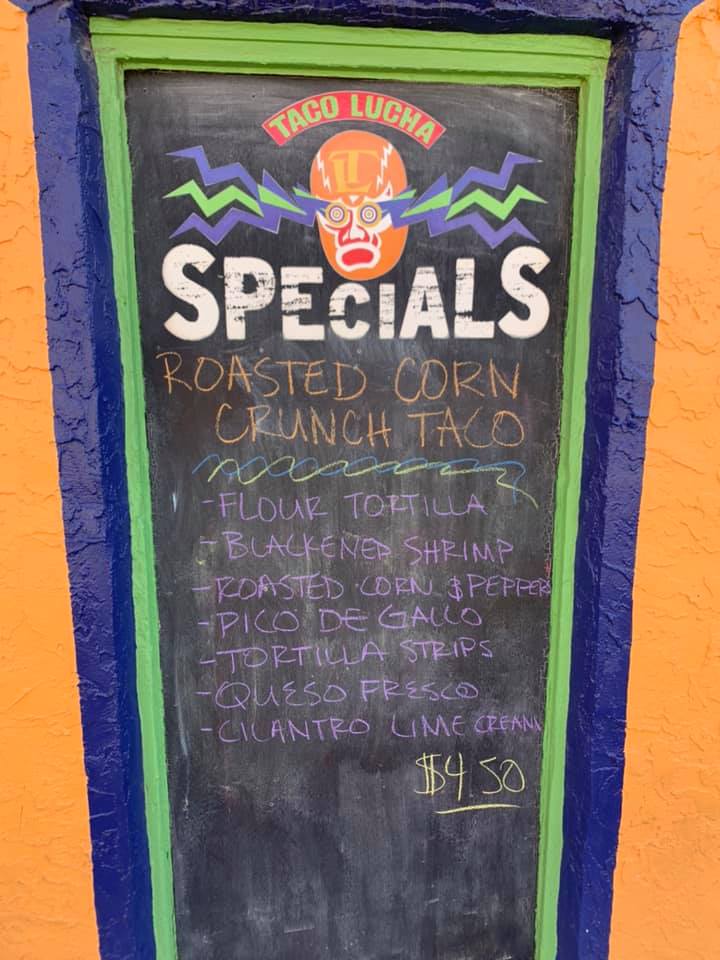 TACO LUCHA
LT
SPECIALS
ROASTED CORN
CRUNCH TACO
-FLOUR TORTILLA
-BLACKENED SHRIMP
-ROASTED CORN & PEPPERS
-PICO DE GALLO
-TORTILLA STRIPS
-QUESO FRESCO
-CILANTRO LIME CREAM
$4.50